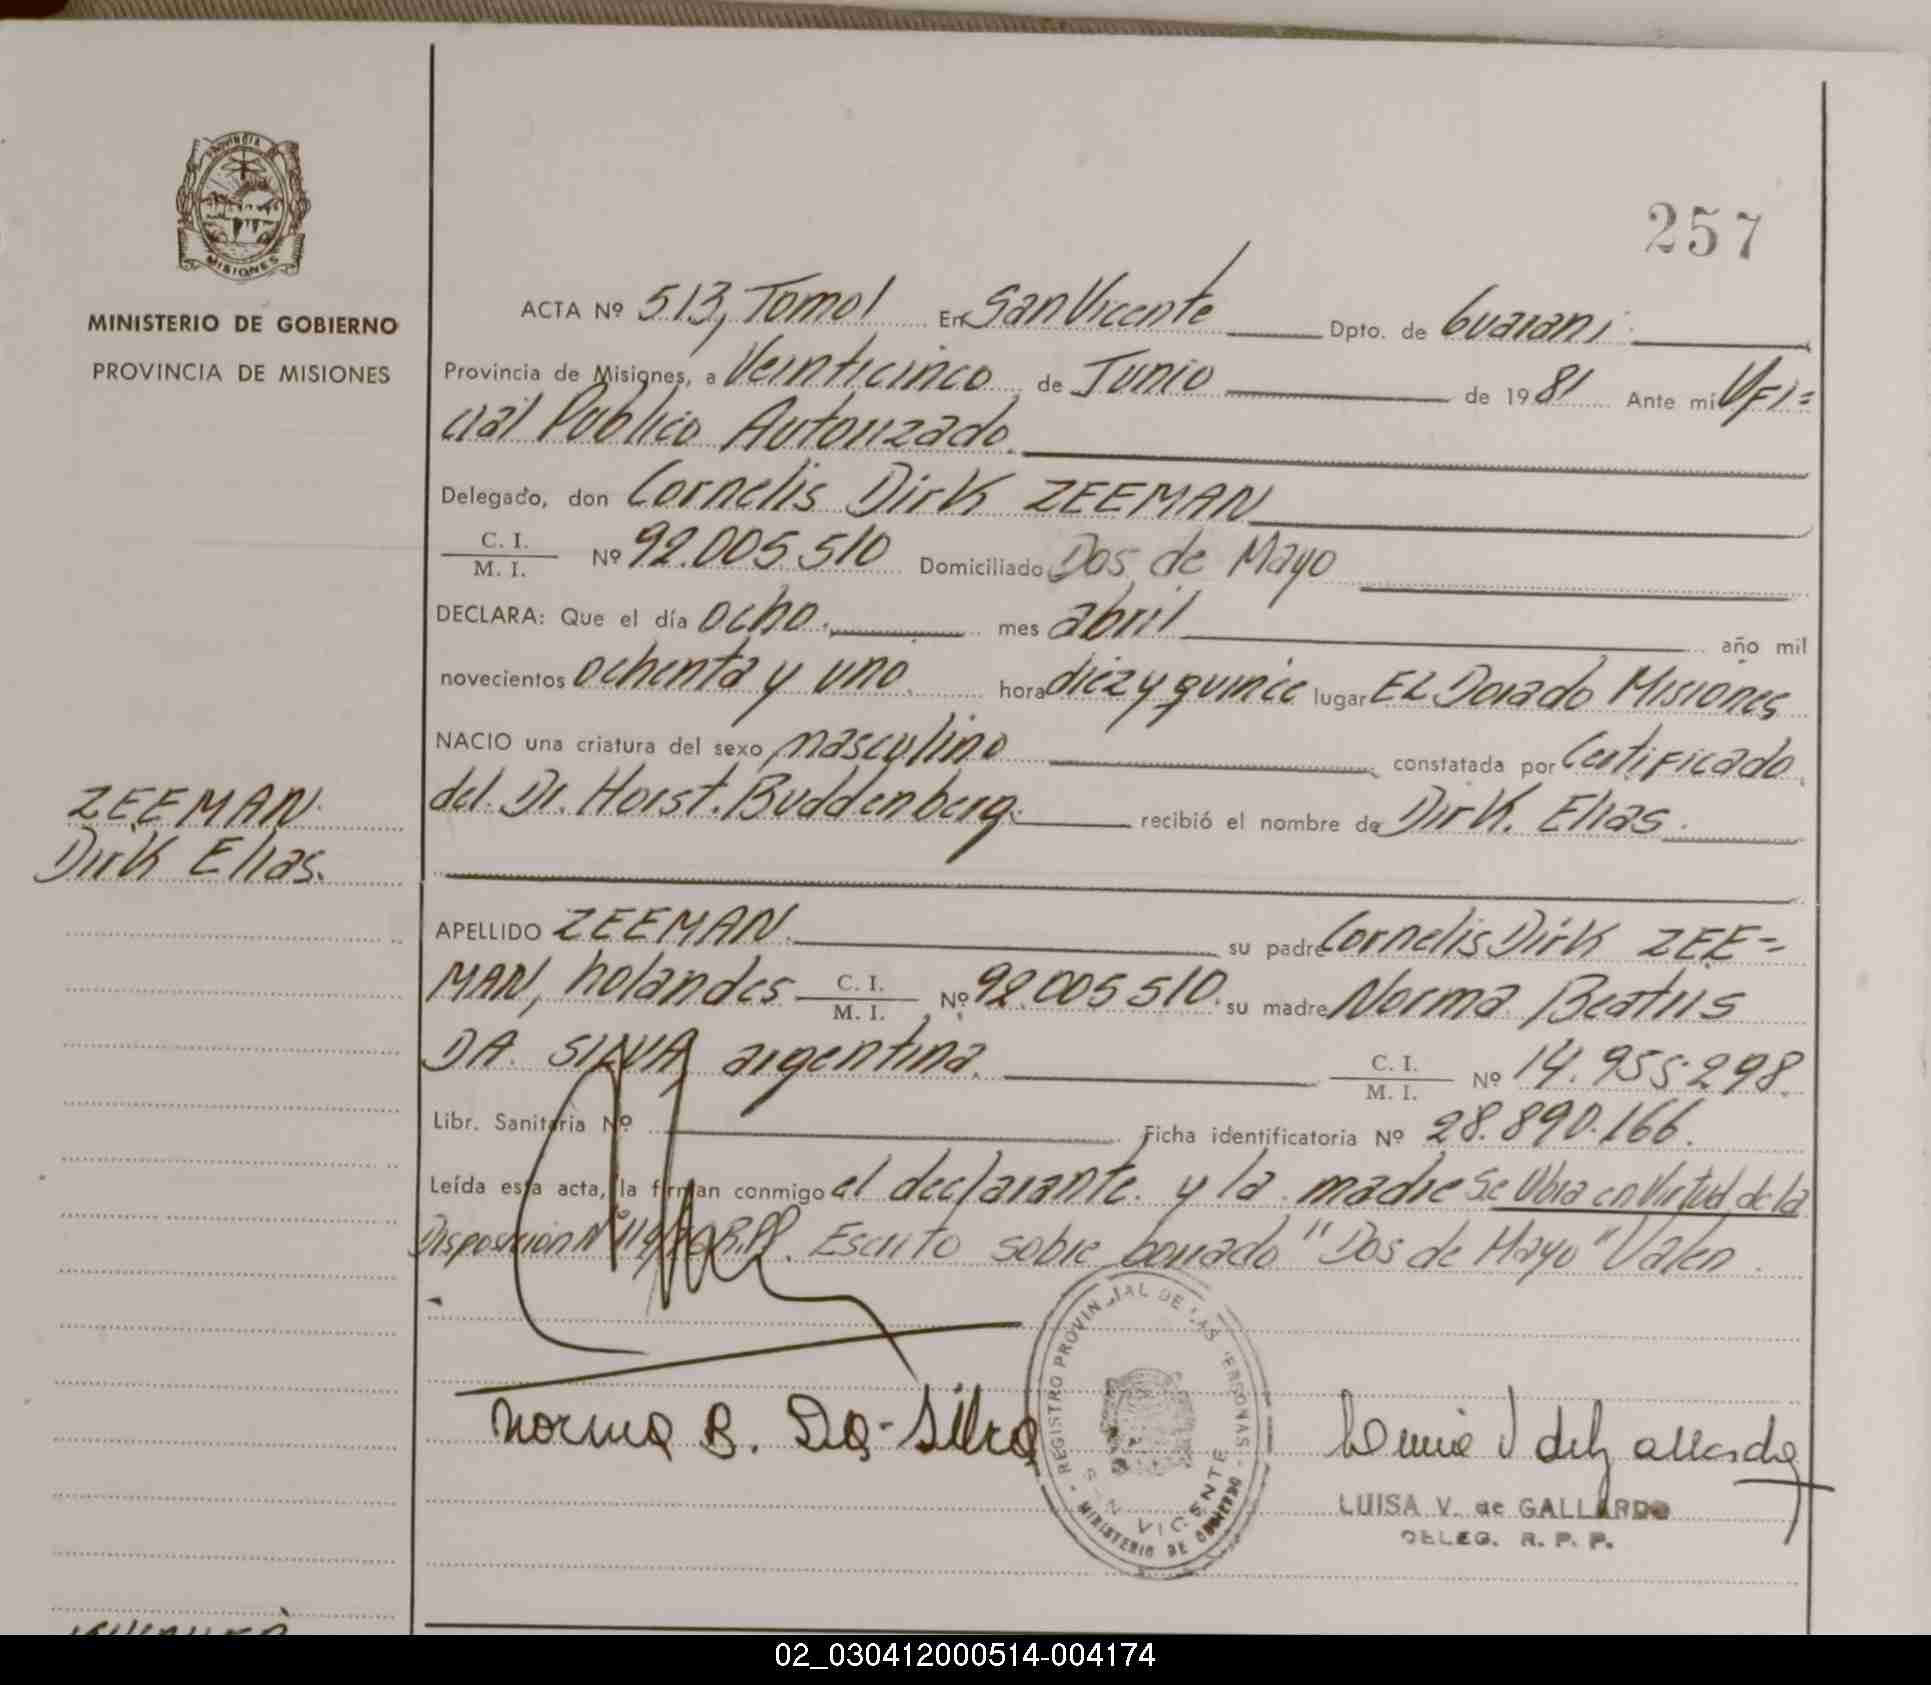 PROVINCIA DE
MISIONES
MINISTERIO DE GOBIERNO
PROVINCIA DE MISIONES
ZEEMAN
Dirk Elias.
257
ACTA Nº 513, Tomo I En San Vicente Dpto. de Guarani
Provincia de Misiones, a Veinticinco de Junio de 1981 Ante mí Ofi=
cial Publico Autorizado.
Delegado, don Cornelis Dirk ZEEMAN
C. I. / M. I. Nº 92.005.510 Domiciliado Dos de Mayo
DECLARA: Que el día ocho. mes abril año mil
novecientos ochenta y uno. hora diez y quince lugar EL Dorado Misiones
NACIO una criatura del sexo masculino constatada por Certificado
del Dr. Horst. Buddenberg. recibió el nombre de Dirk. Elias.
APELLIDO ZEEMAN. su padre Cornelis Dirk ZEE=
MAN, holandes C. I. / M. I. Nº 92.005510. su madre Norma Beatris
DA. SILVA, argentina. C. I. / M. I. Nº 14.955.298.
Libr. Sanitaria Nº Ficha identificatoria Nº 28.890.166.
Leída esta acta, la firman conmigo el declarante. y la madre Se Obra en Virtud de la
Disposicion Nº R.P.P. Escrito sobre borrado "Dos de Mayo" Valen
Norma B. Da-Silva
REGISTRO PROVINCIAL DE LAS PERSONAS
SAN VICENTE
MINISTERIO DE GOBIERNO
Luisa V de Gallardo
LUISA V. de GALLARDO
DELEG. R. P. P.
02_030412000514-004174